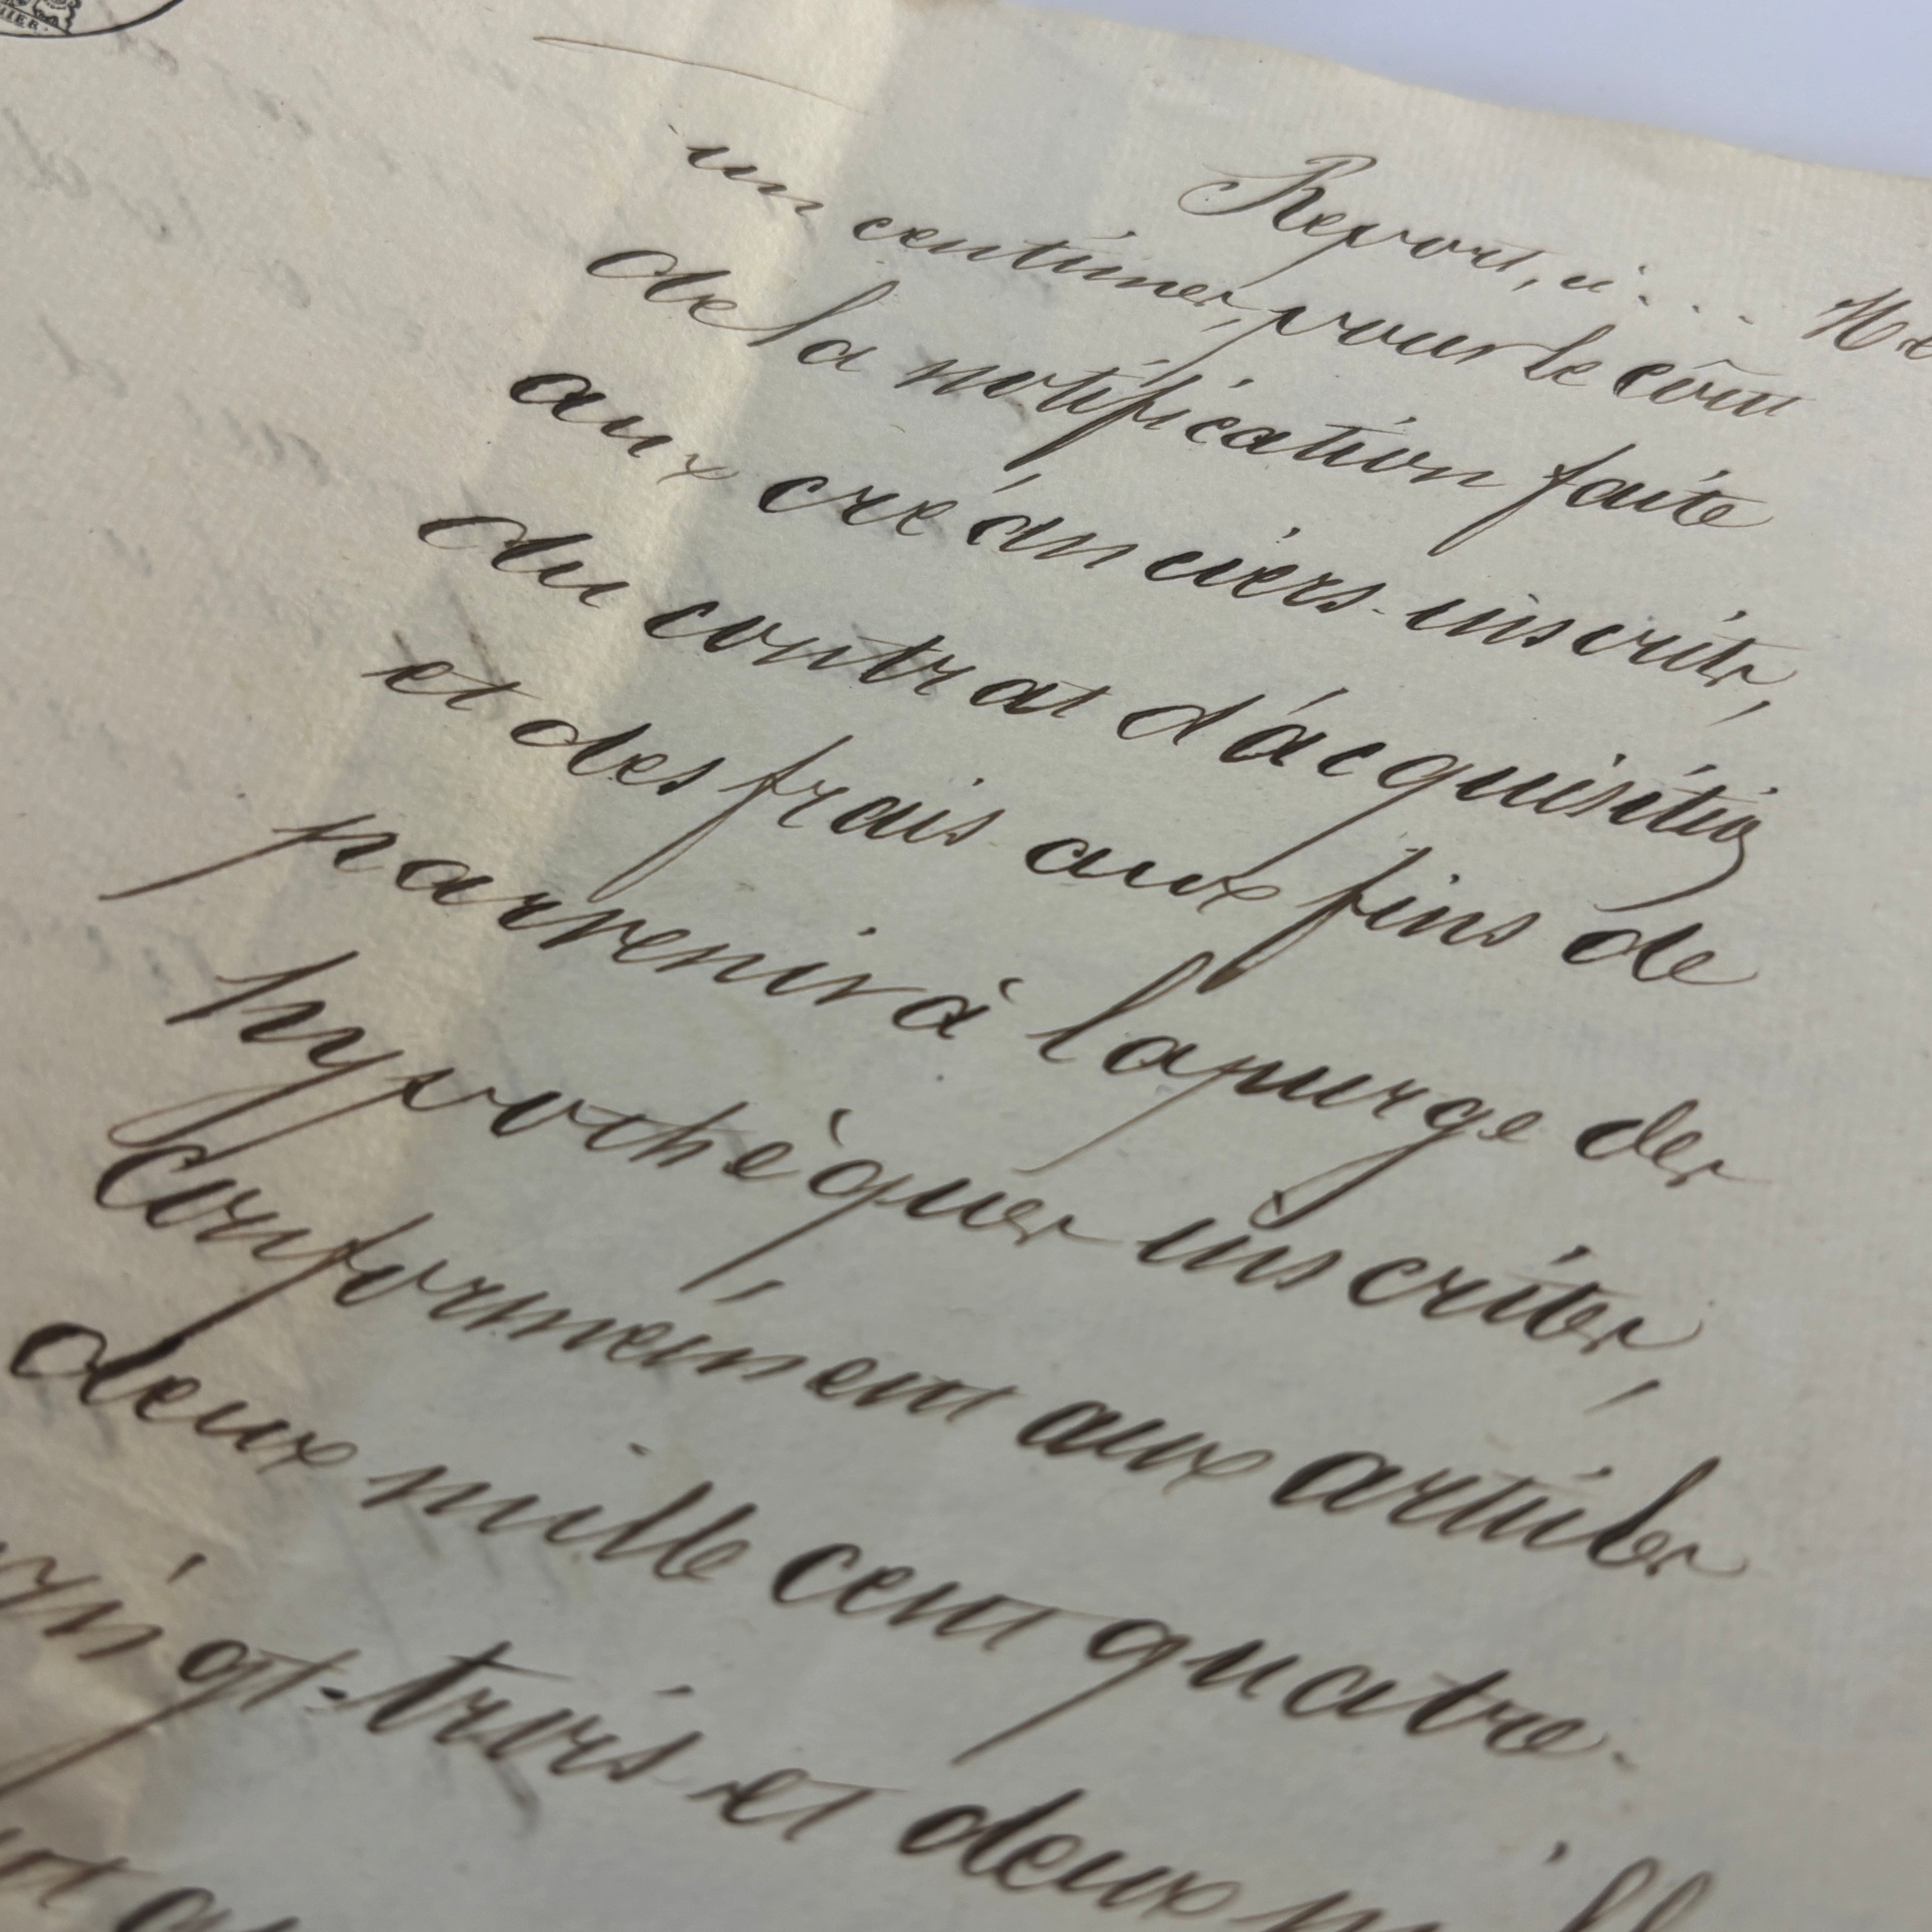 Report, ci...
un centimes, pour le coût
de la notification faite
aux créanciers-inscrits,
du contrat d'acquisition
et des frais aux fins de
parvenir à la purge des
hypothèques inscrites,
conformément aux articles
deux mille cent quatre-
vingt-trois et deux